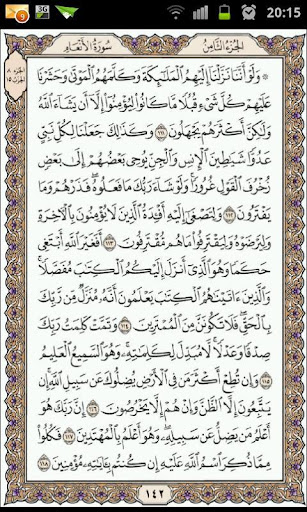 9
3G
20:15
سُورَةُ الأَنْعَامِ
الجُزْءُ الثَّامِنُ
۞ وَلَوْ أَنَّنَا نَزَّلْنَا إِلَيْهِمُ الْمَلَٰٓئِكَةَ وَكَلَّمَهُمُ الْمَوْتَىٰ وَحَشَرْنَا
عَلَيْهِمْ كُلَّ شَيْءٍ قُبُلًا مَّا كَانُوا لِيُؤْمِنُوٓا إِلَّآ أَن يَشَآءَ اللَّهُ
وَلَٰكِنَّ أَكْثَرَهُمْ يَجْهَلُونَ ١١١ وَكَذَٰلِكَ جَعَلْنَا لِكُلِّ نَبِيٍّ
عَدُوًّا شَيَٰطِينَ الْإِنسِ وَالْجِنِّ يُوحِي بَعْضُهُمْ إِلَىٰ بَعْضٍ
زُخْرُفَ الْقَوْلِ غُرُورًا وَلَوْ شَآءَ رَبُّكَ مَا فَعَلُوهُ فَذَرْهُمْ وَمَا
يَفْتَرُونَ ١١٢ وَلِتَصْغَىٰٓ إِلَيْهِ أَفْـِٔدَةُ الَّذِينَ لَا يُؤْمِنُونَ بِالْءَاخِرَةِ
وَلِيَرْضَوْهُ وَلِيَقْتَرِفُوا مَا هُم مُّقْتَرِفُونَ ١١٣ أَفَغَيْرَ اللَّهِ أَبْتَغِي
حَكَمًا وَهُوَ الَّذِيٓ أَنزَلَ إِلَيْكُمُ الْكِتَٰبَ مُفَصَّلًا
وَالَّذِينَ ءَاتَيْنَٰهُمُ الْكِتَٰبَ يَعْلَمُونَ أَنَّهُۥ مُنَزَّلٌ مِّن رَّبِّكَ
بِالْحَقِّ فَلَا تَكُونَنَّ مِنَ الْمُمْتَرِينَ ١١٤ وَتَمَّتْ كَلِمَتُ رَبِّكَ
صِدْقًا وَعَدْلًا لَّا مُبَدِّلَ لِكَلِمَٰتِهِۦ وَهُوَ السَّمِيعُ الْعَلِيمُ
١١٥ وَإِن تُطِعْ أَكْثَرَ مَن فِي الْأَرْضِ يُضِلُّوكَ عَن سَبِيلِ اللَّهِ إِن
يَتَّبِعُونَ إِلَّا الظَّنَّ وَإِنْ هُمْ إِلَّا يَخْرُصُونَ ١١٦ إِنَّ رَبَّكَ هُوَ
أَعْلَمُ مَن يَضِلُّ عَن سَبِيلِهِۦ وَهُوَ أَعْلَمُ بِالْمُهْتَدِينَ ١١٧ فَكُلُوا
مِمَّا ذُكِرَ اسْمُ اللَّهِ عَلَيْهِ إِن كُنتُم بِـَٔايَٰتِهِۦ مُؤْمِنِينَ ١١٨
١٤٢